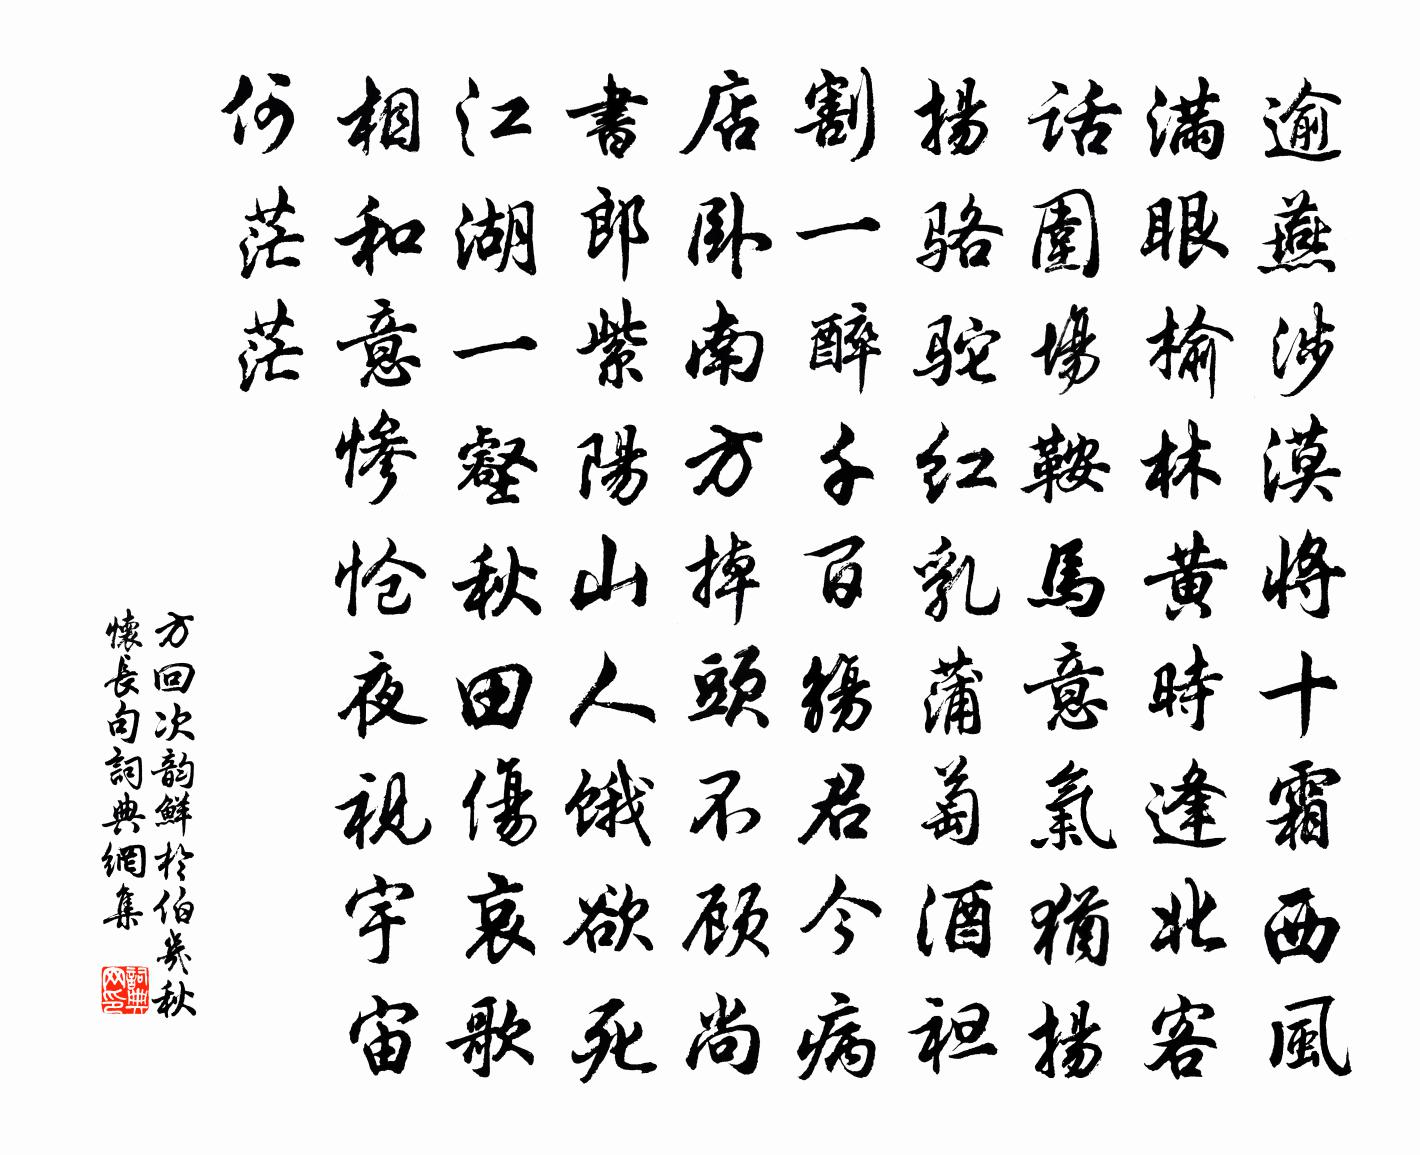 逾燕涉漠將十霜西風
滿眼榆林黃時逢北客
話圍場鞍馬意氣猶揚
揚駱駝紅乳蒲萄酒袒
割一醉千百觴君今病
店臥南方掉頭不顾尚
書郎紫陽山人餓欲死
江湖一壑秋田傷哀歌
相和意慘愴夜視宇宙
何茫茫
方回次韵鮮於伯幾秋
懷長句詞典網集
詞典网印